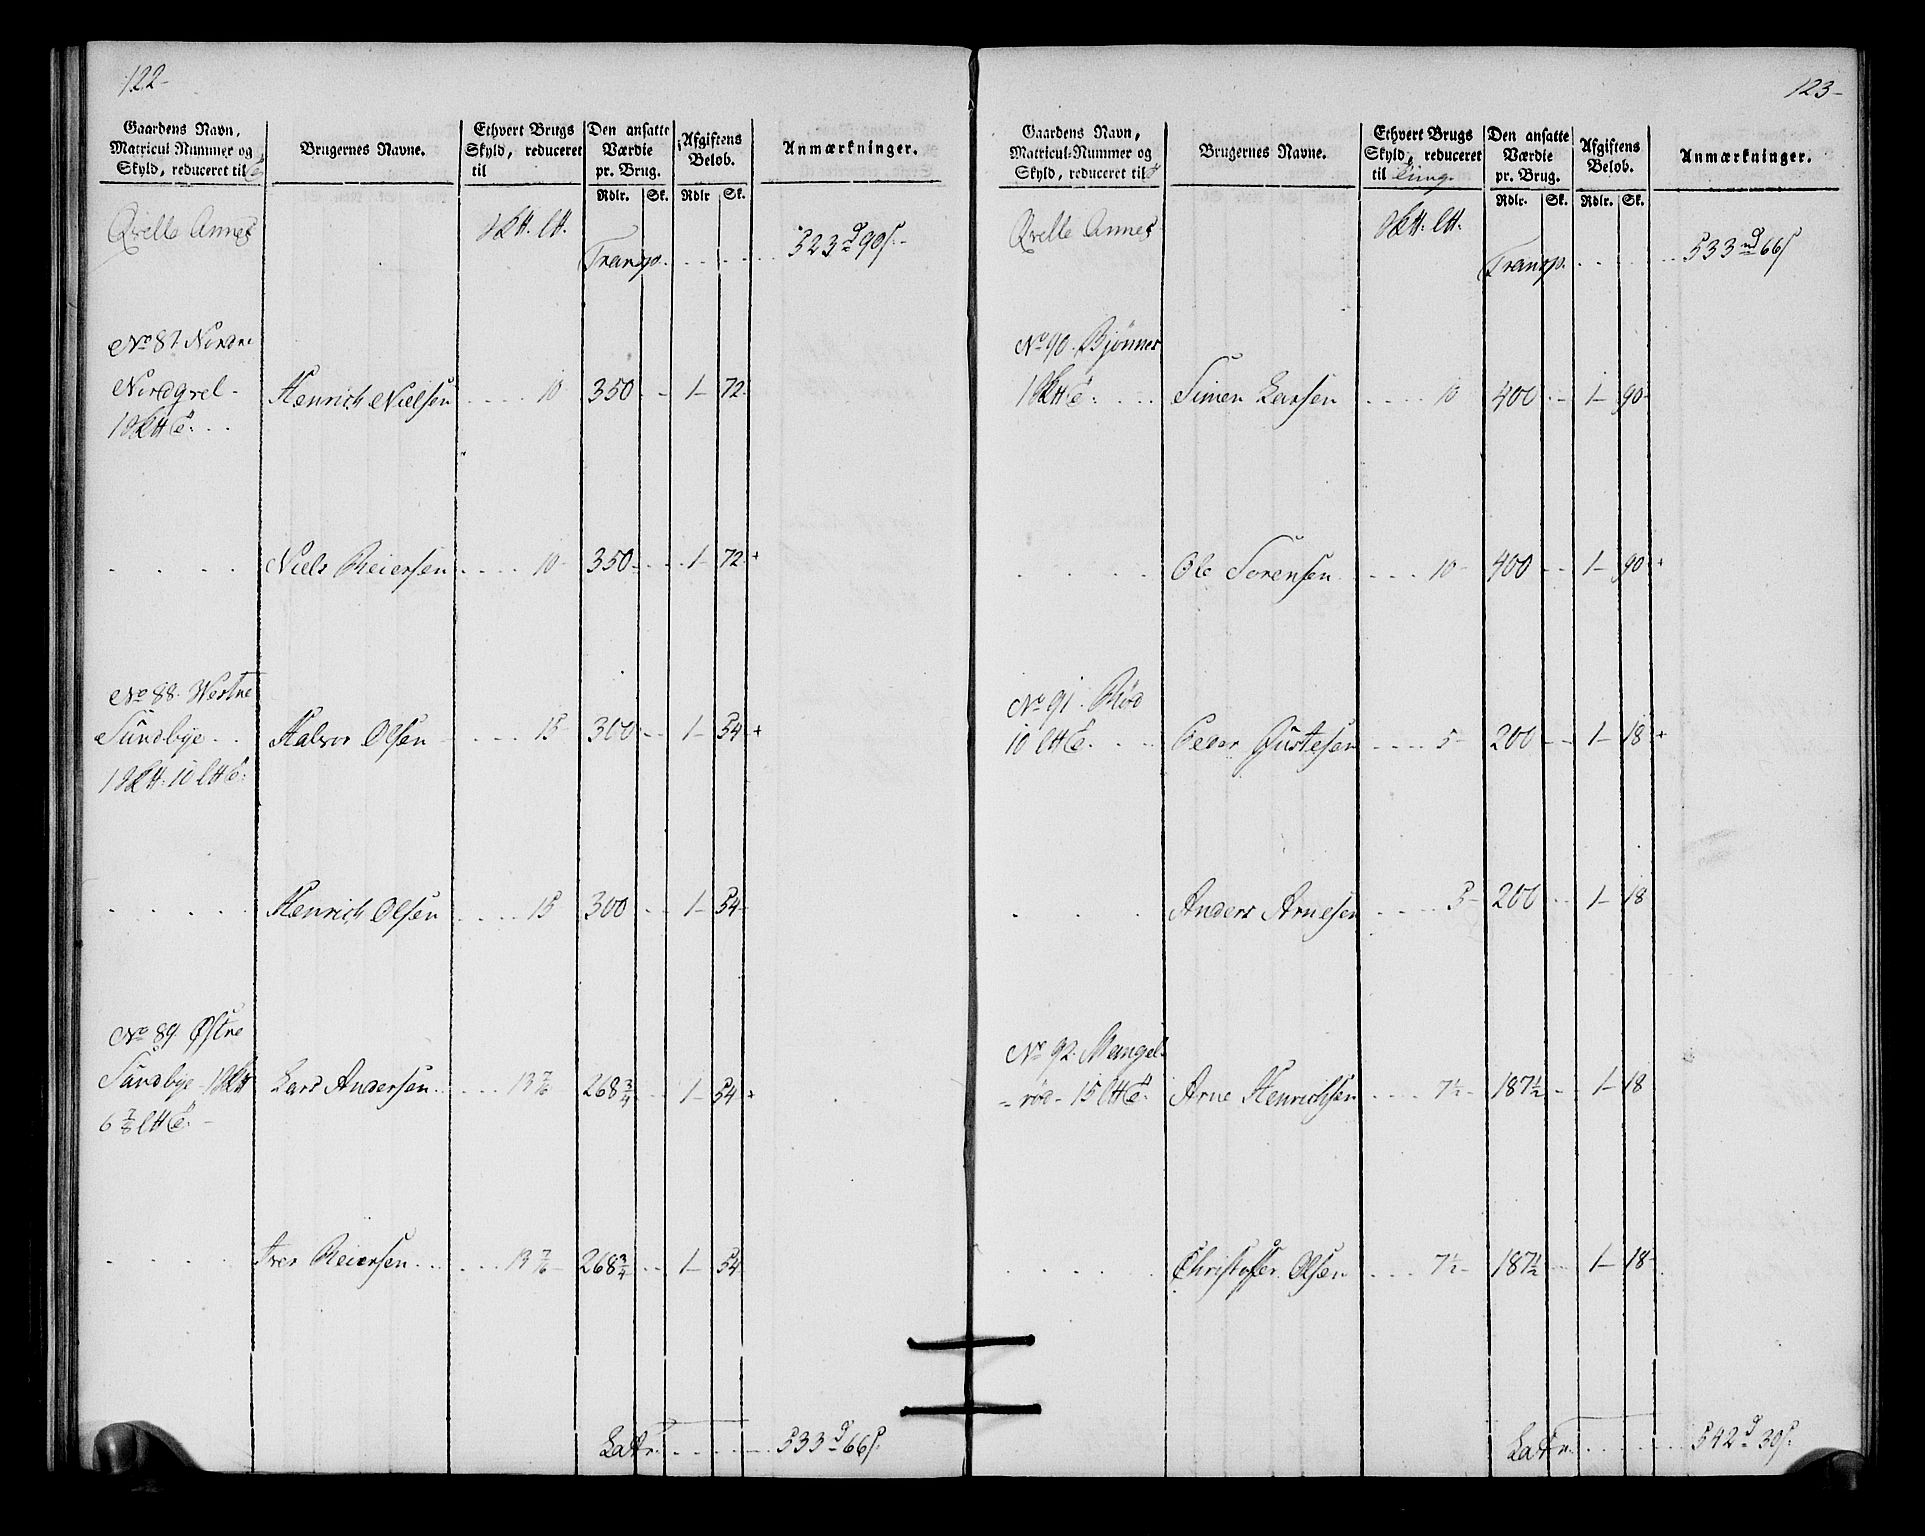 122-
Gaardens Navn, Matricul-Nummer og Skyld, reduceret til
Brugernes Navne.
Ethvert Brugs Skyld, reduceret til
Den ansatte Værdie pr. Brug.
Afgiftens Beløb.
Anmærkninger.
Rdlr. Sk. Rdlr Sk.
Qvelle Annex
Transp. . . . . . 523 d 90 s.
No 87 Nordre
Nordgrel - Henrich Nielsen . . . . 10 350 - - 1- 72-
. . . . Niels Reiersen . . . . 10- 350 - - 1- 72 +
No 88. Westre
Sundbye . . Halvor Olsen . . . . 15- 300 - - 1- 54 +
. . . . . Henrich Olsen . . . . 15- 300 - - 1- 54-
No 89 Østre
Sundbye - Lars Andersen . . . . 13 7/16 268 3/4 - - 1- 54 +
6 7/8
. . . . Iver Reiersen . . . . 13 7/16 268 3/4 - - 1- 54
Latr. . . . . . 533 d 66 s.
123-
Gaardens Navn, Matricul-Nummer og Skyld, reduceret til
Brugernes Navne.
Ethvert Brugs Skyld, reduceret til Tung.
Den ansatte Værdie pr. Brug.
Afgiftens Beløb.
Anmærkninger.
Rdlr. Sk. Rdlr. Sk.
Qvelle Annex
Transp. . . . . . 533 d 66 s
No 90. Bjønnes
Simen Larsen . . . . 10 400 - - 1- 90-
. . . . Ole Sorensen . . . . 10- 400 - - 1- 90 +
No 91. Röd
Peder Justesen . . . . 5- 200 - - 1- 18 +
. . . Anders Arnesen . . . . 5- 200 - - 1- 18
No 92. Mangel-
röd - 15 Arne Henrichsen . . . . 7 1/2- 187 1/2 - - 1- 18
. . . . Christoffer Olsen . . . . 7 1/2- 187 1/2 - - 1- 18-
Latr. . . . . . 542 d 30 s.